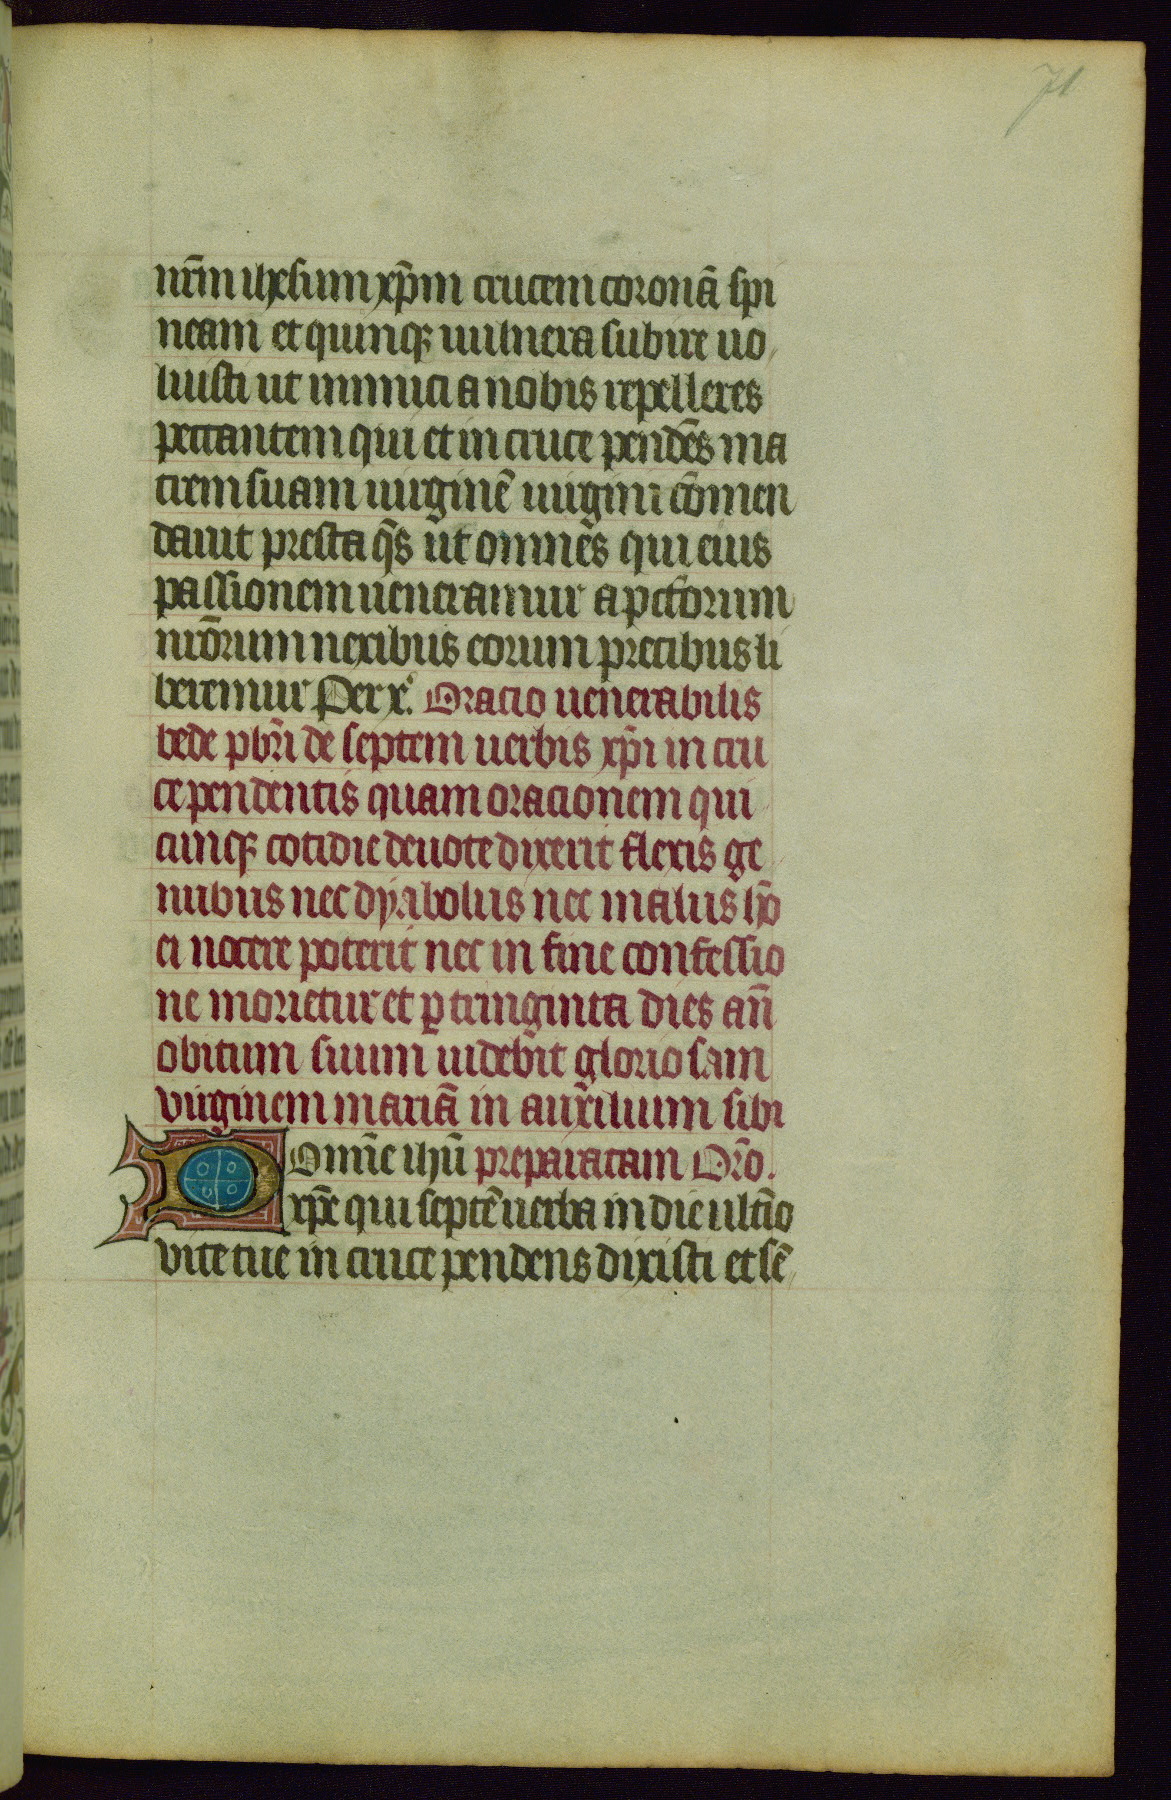 71
nr̄m ihesum xp̄m crucem coronā spi
neam et quinqꝫ uulnera subire uo
luisti ut inimici a nobis repelleres
peccantem qui et in cruce pendēs ma
trem suam uirginē uirgini cōmen
dauit presta qs̄ ut omnes qui eius
passionem ueneramur a pctōrum
nrōrum nexibus eorum precibus li
beremur Per x. Oracio uenerabilis
bede pbr̄i de septem uerbis xp̄i in cru
ce pendentis quam oracionem qui
cunqꝫ cotidie deuote dixerit flexis ge
nubus nec dyabolus nec malus hō
ei nocere poterit nec in fine confessio
ne morietur et ꝑ tringinta dies an̄
obitum suum uidebit gloriosam
virginem mariā in auxilium sibi
Domīe ihū preparatam Or̄o.
xp̄e qui septē uerba in die ultīo
vite tue in cruce pendens dixisti et sē